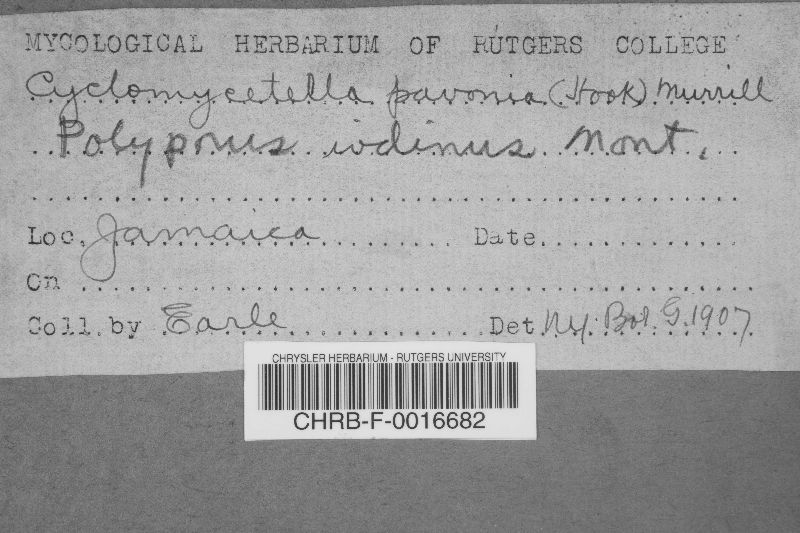 MYCOLOGICAL HERBARIUM OF RUTGERS COLLEGE
Cyclomycetella pavonia (Hook) Murrill
Polyporus iodinus Mont.
Loc. Jamaica Date
On
Coll. by Earle Det N.Y. Bot. G. 1907
CHRYSLER HERBARIUM - RUTGERS UNIVERSITY
CHRB-F-0016682